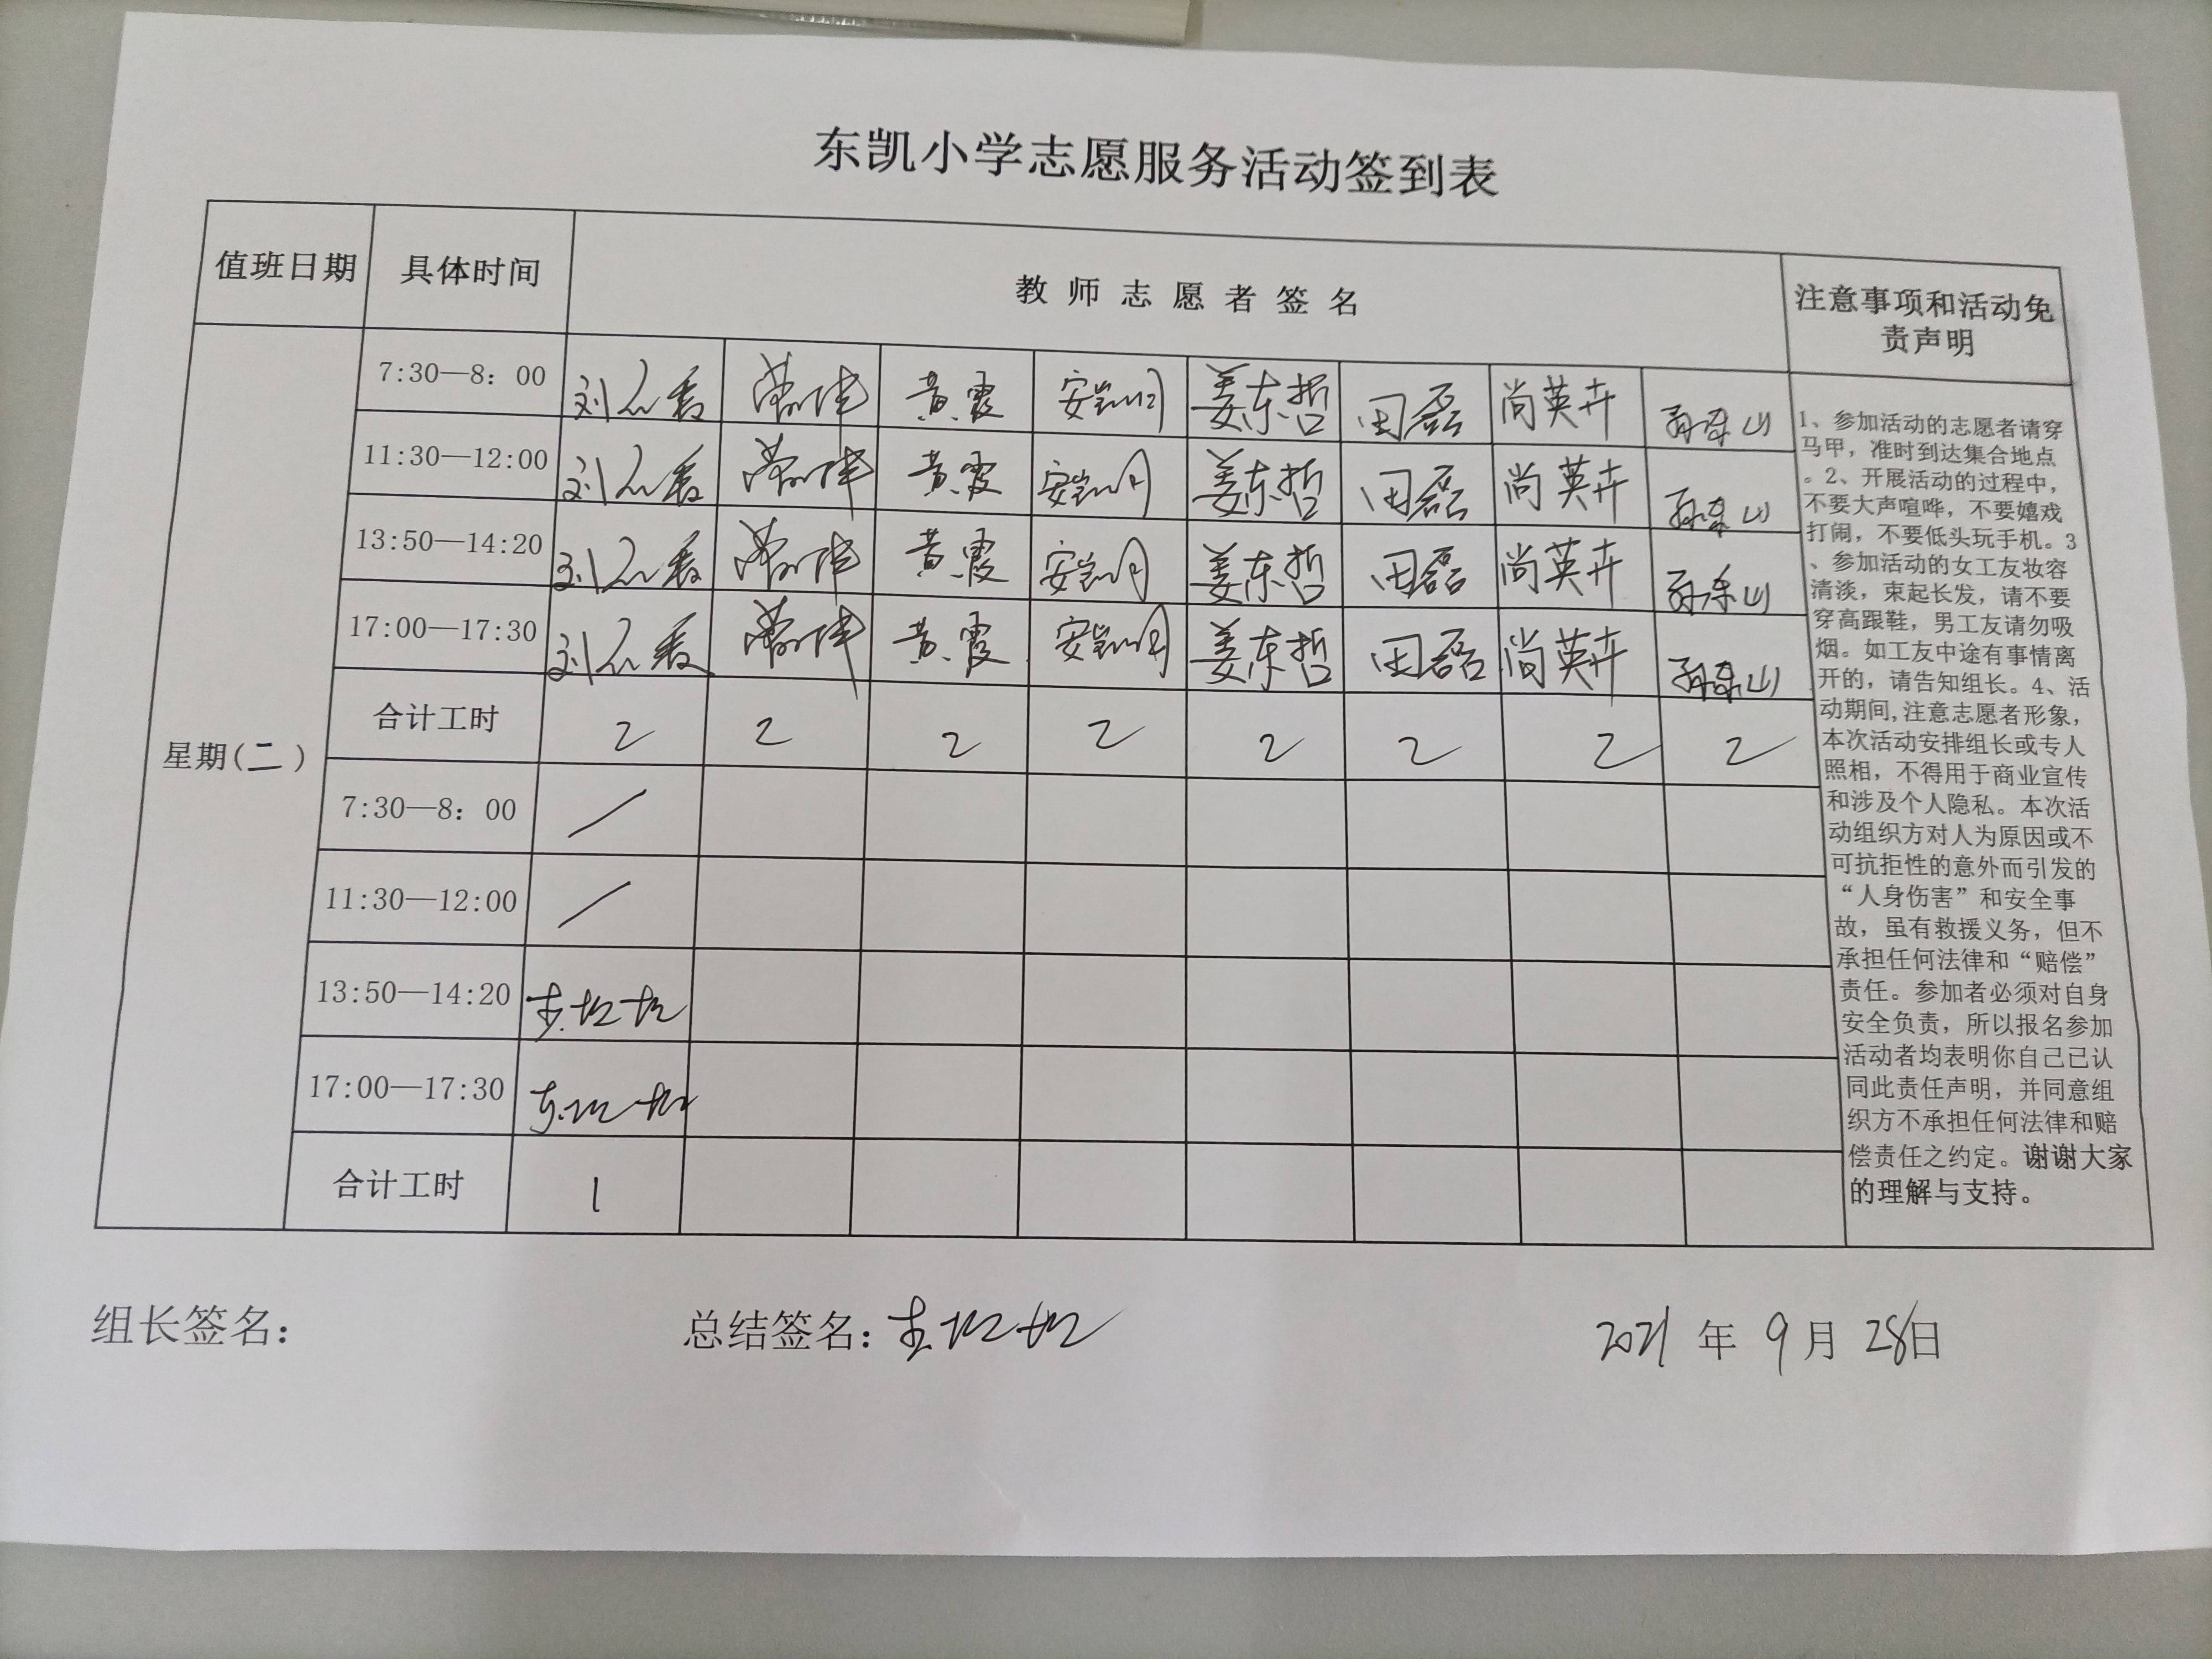 东凯小学志愿服务活动签到表
值班日期 具体时间 教师志愿者签名 注意事项和活动免
责声明
7:30—8:00 黄霞 姜东哲 田磊 尚英卉
11:30—12:00 黄霞 姜东哲 田磊 尚英卉
13:50—14:20 黄霞 姜东哲 田磊 尚英卉
17:00—17:30 黄霞 姜东哲 田磊 尚英卉
合计工时 2 2 2 2 2 2 2 2
星期(二)
7:30—8:00 /
11:30—12:00 /
13:50—14:20
17:00—17:30
合计工时 1
1、参加活动的志愿者请穿
马甲，准时到达集合地点
。2、开展活动的过程中，
不要大声喧哗，不要嬉戏
打闹，不要低头玩手机。3
、参加活动的女工友妆容
清淡，束起长发，请不要
穿高跟鞋，男工友请勿吸
烟。如工友中途有事情离
开的，请告知组长。4、活
动期间,注意志愿者形象，
本次活动安排组长或专人
照相，不得用于商业宣传
和涉及个人隐私。本次活
动组织方对人为原因或不
可抗拒性的意外而引发的
“人身伤害”和安全事
故，虽有救援义务，但不
承担任何法律和“赔偿”
责任。参加者必须对自身
安全负责，所以报名参加
活动者均表明你自己已认
同此责任声明，并同意组
织方不承担任何法律和赔
偿责任之约定。谢谢大家
的理解与支持。
组长签名： 总结签名： 2021 年 9 月 28日